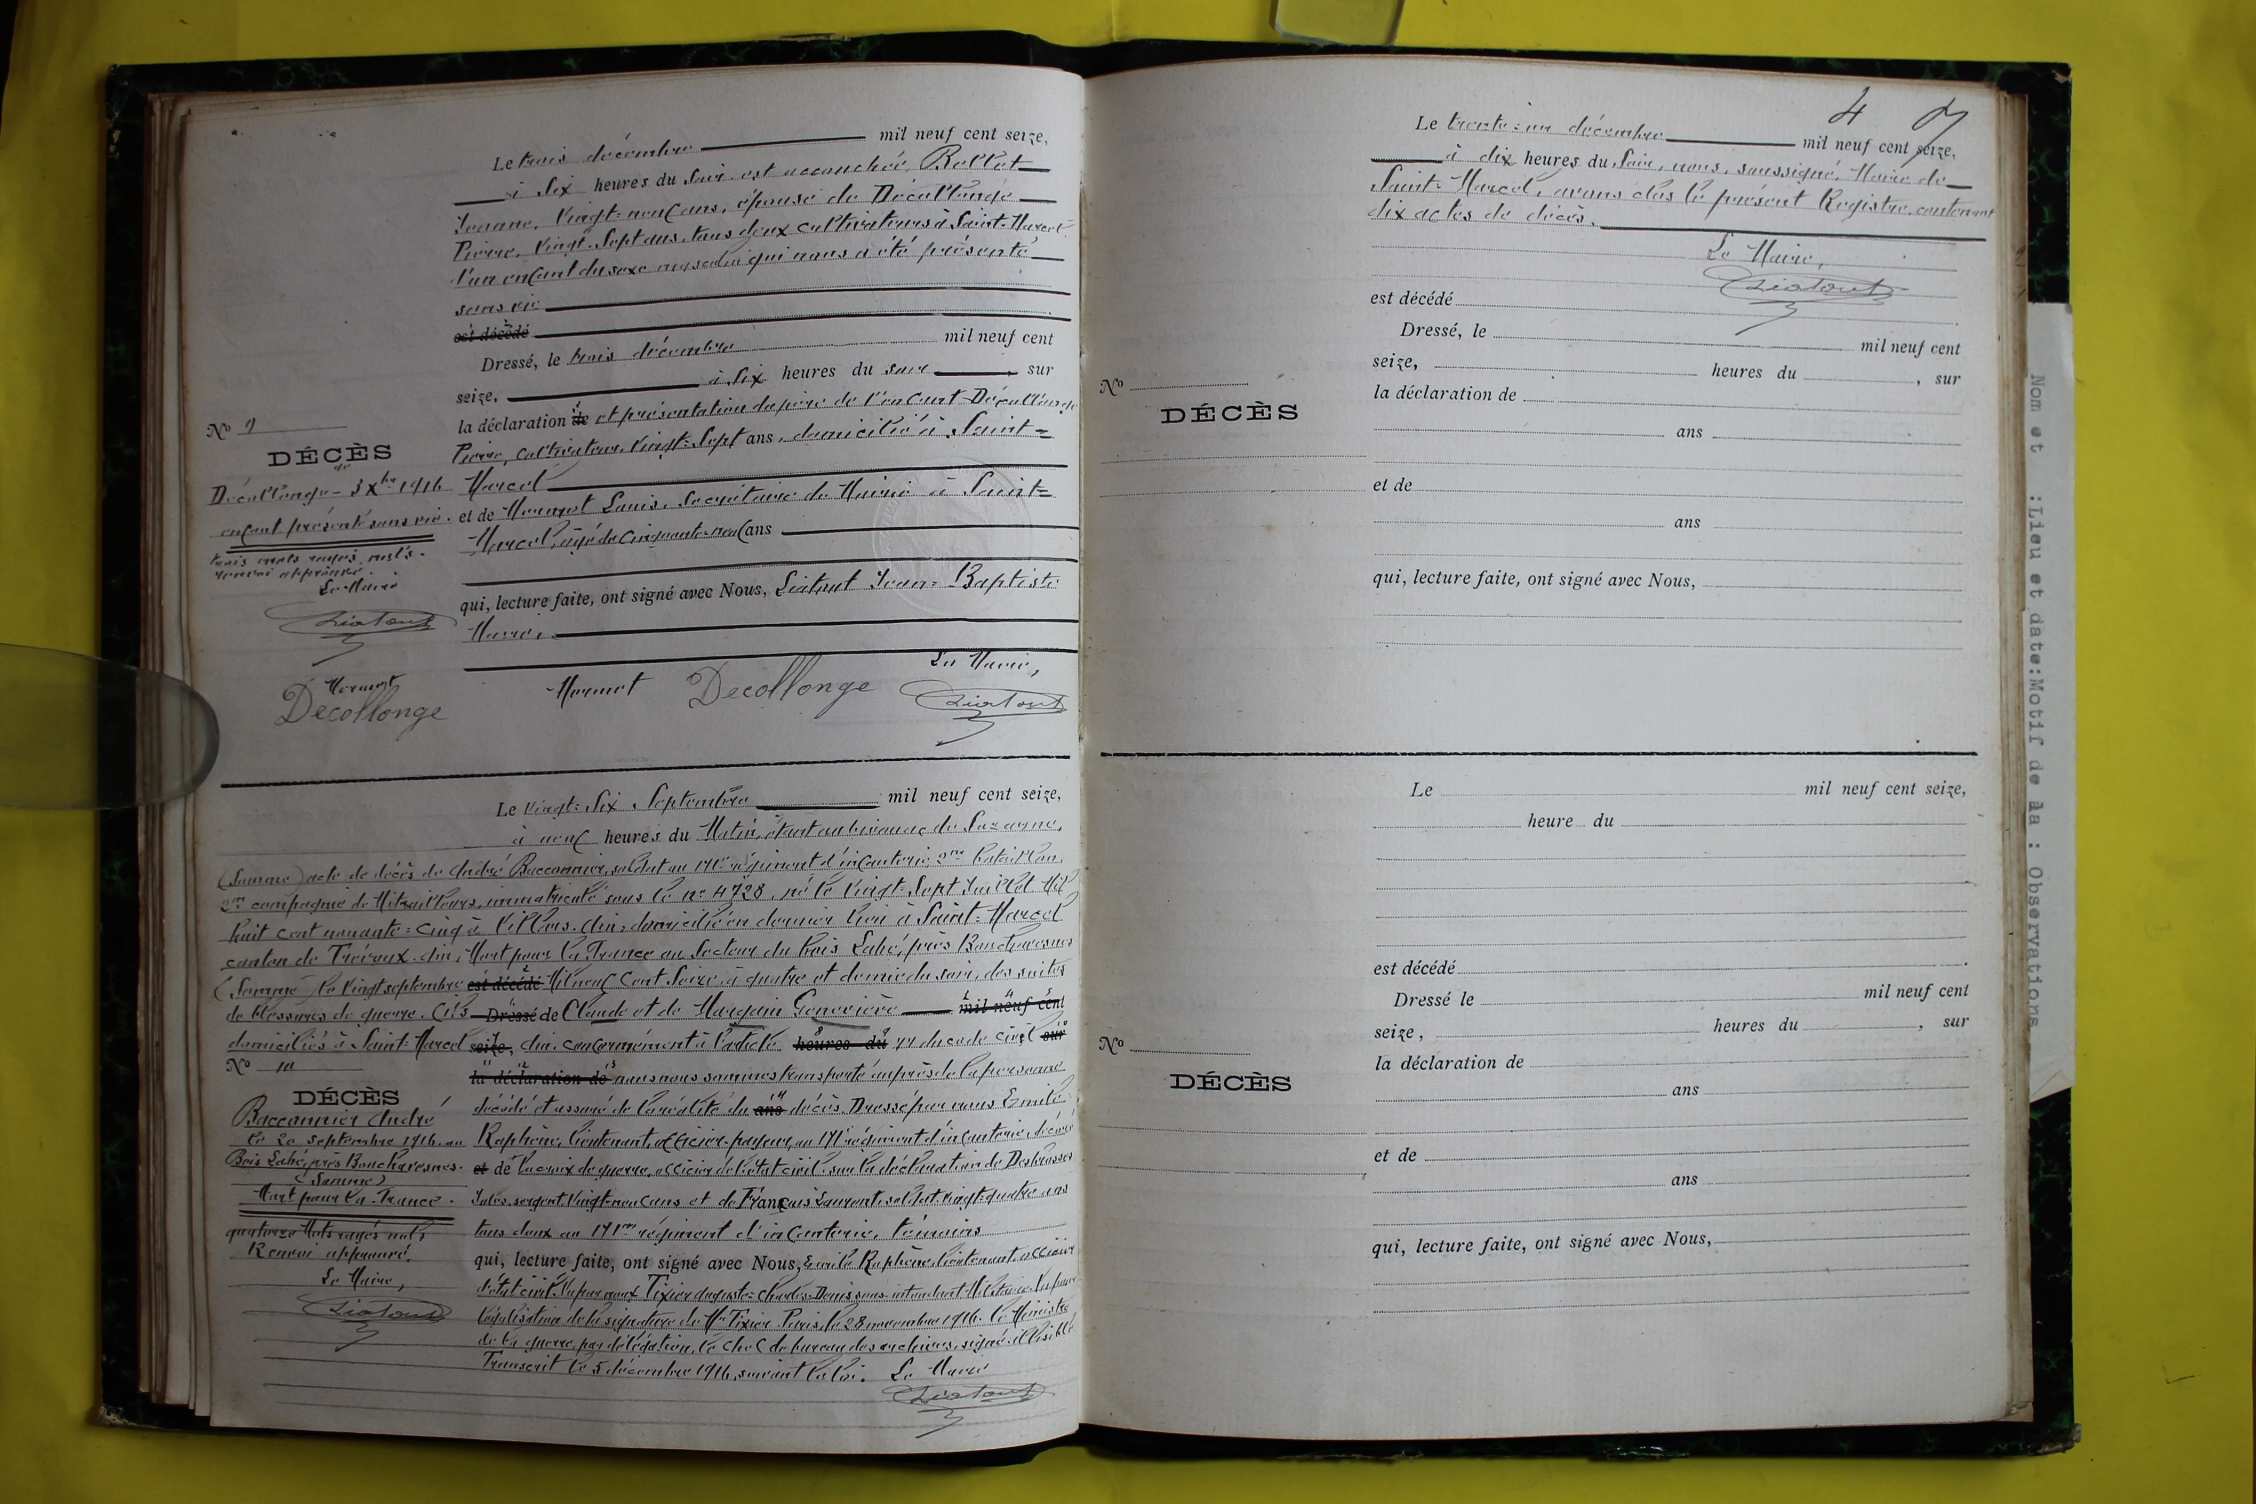 Le trois décembre mil neuf cent seize,
à Six heures du Soir est accouchée, Rollet
Jeanne, Vingt=neuf ans, épouse de Décollonge
Pierre, Vingt=Sept ans, tous deux cultivateurs à Saint-Marcel
d'un enfant du sexe masculin qui nous a été présenté
sans vie
est décédé
Dressé, le trois décembre mil neuf cent
seize, à Six heures du soir, sur
la déclaration de et présentation du père de l'enfant Décollonge
Pierre, cultivateur, Vingt=Sept ans, domicilié à Saint=
Marcel
et de Mermet Louis, Secrétaire de Mairie à Saint=
Marcel, âgé de Cinquante-neuf ans
qui, lecture faite, ont signé avec Nous, Liatout Jean=Baptiste
Maire.
Le Maire,
Mermet Decollonge Liatout
No 9
DÉCÈS
de
Décollonge - 3 Xbre 1916
enfant présenté sans vie.
trois mots rayés nuls.
renvoi approuvé.
Le Maire
Liatout
Mermet
Decollonge
Le Vingt=Six Septembre mil neuf cent seize,
à neuf heures du Matin, étant au bivouac de Suzanne,
(Somme) acte de décès de André Baconnier, soldat au régiment d'infanterie, 2me bataillon,
2me compagnie de Mitrailleurs, immatriculé sous le no 4728, né le Vingt=Sept Juillet Mil
huit cent nonante=cinq à Villars, Ain, domicilié en dernier lieu à Saint=Marcel
canton de Trévoux, Ain, Mort pour la France au Secteur du bois Labé, près Bouchavesnes
(Somme) le Vingt septembre est décédé Mil neuf Cent Seize à quatre et demie du soir, des suites
de blessures de guerre. fils Dressé de Claude et de Geneviève mil neuf cent
domiciliés à Saint=Marcel seize, Ain. conformément à l'article heures du 77 du code civil sur
la déclaration de nous nous sommes transporté auprès de la personne
décédé et assuré de la réalité du ans décès. Dressé par nous Emile
Raphène, lieutenant, officier-payeur, au régiment d'infanterie, décoré
et de la croix de guerre, officier de l'état civil, sur la déclaration de Desbrosses
Jules, sergent, Vingt=neuf ans et de François Laurent, soldat, vingt=quatre ans
tous deux au régiment d'infanterie, témoins
qui, lecture faite, ont signé avec Nous, Emile Raphène, lieutenant officier
d'état civil. Vu par nous Tixier Auguste=Charles=Denis sous-intendant Militaire. Vu pour
légalisation de la signature de Mr Tixier. Paris, le 28 novembre 1916. le Ministre
de la guerre, par délégation, le chef de bureau des archives, signé: illisible
Transcrit le 5 décembre 1916, suivant la loi. Le Maire
Liatout
No 10
DÉCÈS
Baconnier André
le 20 septembre 1916. au
Bois Labé, près Bouchavesnes.
(Somme)
Mort pour la France.
quatorze Mots rayés nuls
Renvoi approuvé.
Le Maire,
Liatout
4
Le trente=un décembre mil neuf cent seize,
à dix heures du Soir, nous, soussigné, Maire de
Saint=Marcel, avons clos le présent Registre, contenant
dix actes de décès.
Le Maire,
Liatout
est décédé
Dressé, le mil neuf cent
seize, heures du , sur
la déclaration de
ans
et de
ans
qui, lecture faite, ont signé avec Nous,
No
DÉCÈS
Le mil neuf cent seize,
heure du
est décédé
Dressé le mil neuf cent
seize, heures du , sur
la déclaration de
ans
et de
ans
qui, lecture faite, ont signé avec Nous,
No
DÉCÈS
Nom et :Lieu et date:Motif de la : Observations